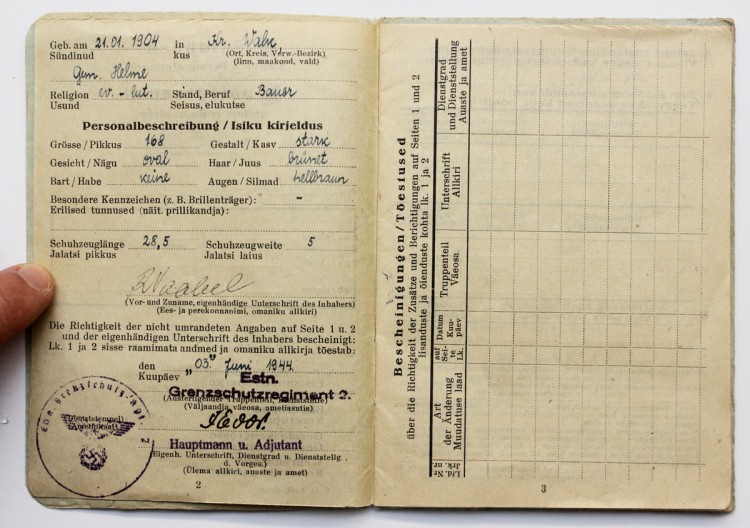 Geb. am 21.01.1904 in Kr. Walk
Sündinud kus (Ort, Kreis, Verw.-Bezirk)
(linn, maakond, vald)
Gem. Helme
Religion ev.-lut. Stand, Beruf Bauer
Usund Seisus, elukutse
Personalbeschreibung / Isiku kirjeldus
Grösse / Pikkus 168 Gestalt / Kasv stark
Gesicht / Nägu oval Haar / Juus brünet
Bart / Habe keine Augen / Silmad hellbraun
Besondere Kennzeichen (z. B. Brillenträger): -
Erilised tunnused (näit. prillikandja):
Schuhzeuglänge 28,5 Schuhzeugweite 5
Jalatsi pikkus Jalatsi laius
(Vor- und Zuname, eigenhändige Unterschrift des Inhabers)
(Ees- ja perekonnanimi, omaniku allkiri)
Die Richtigkeit der nicht umrandeten Angaben auf Seite 1 u. 2
und der eigenhändigen Unterschrift des Inhabers bescheinigt:
Lk. 1 ja 2 sisse raamimata andmed ja omaniku allkirja tõestab:
den
Kuupäev „03." Juni 1944.
Estn.
Grenzschutzregiment 2.
(Ausfertigender Truppenteil, Dienststelle)
(Väljaandja väeosa, ametiasutis)
(Dienststempel)
(Ametipitsat)
Hauptmann u. Adjutant
(Eigenh. Unterschrift, Dienstgrad u. Dienststellg.,
d. Vorges.)
(Ülema allkiri, auaste ja amet)
2
Bescheinigungen / Tõestused
über die Richtigkeit der Zusätze und Berichtigungen auf Seiten 1 und 2
lisanduste ja õienduste kohta lk. 1 ja 2
Lfd. Nr
Jrk. nr.
Art
der Änderung
Muudatuse laad
auf
Sei-
te
Lk.
Datum
Kuu-
päev
Truppenteil
Väeosa
Unterschrift
Allkiri
Dienstgrad
und Dienststellung
Auaste ja amet
3